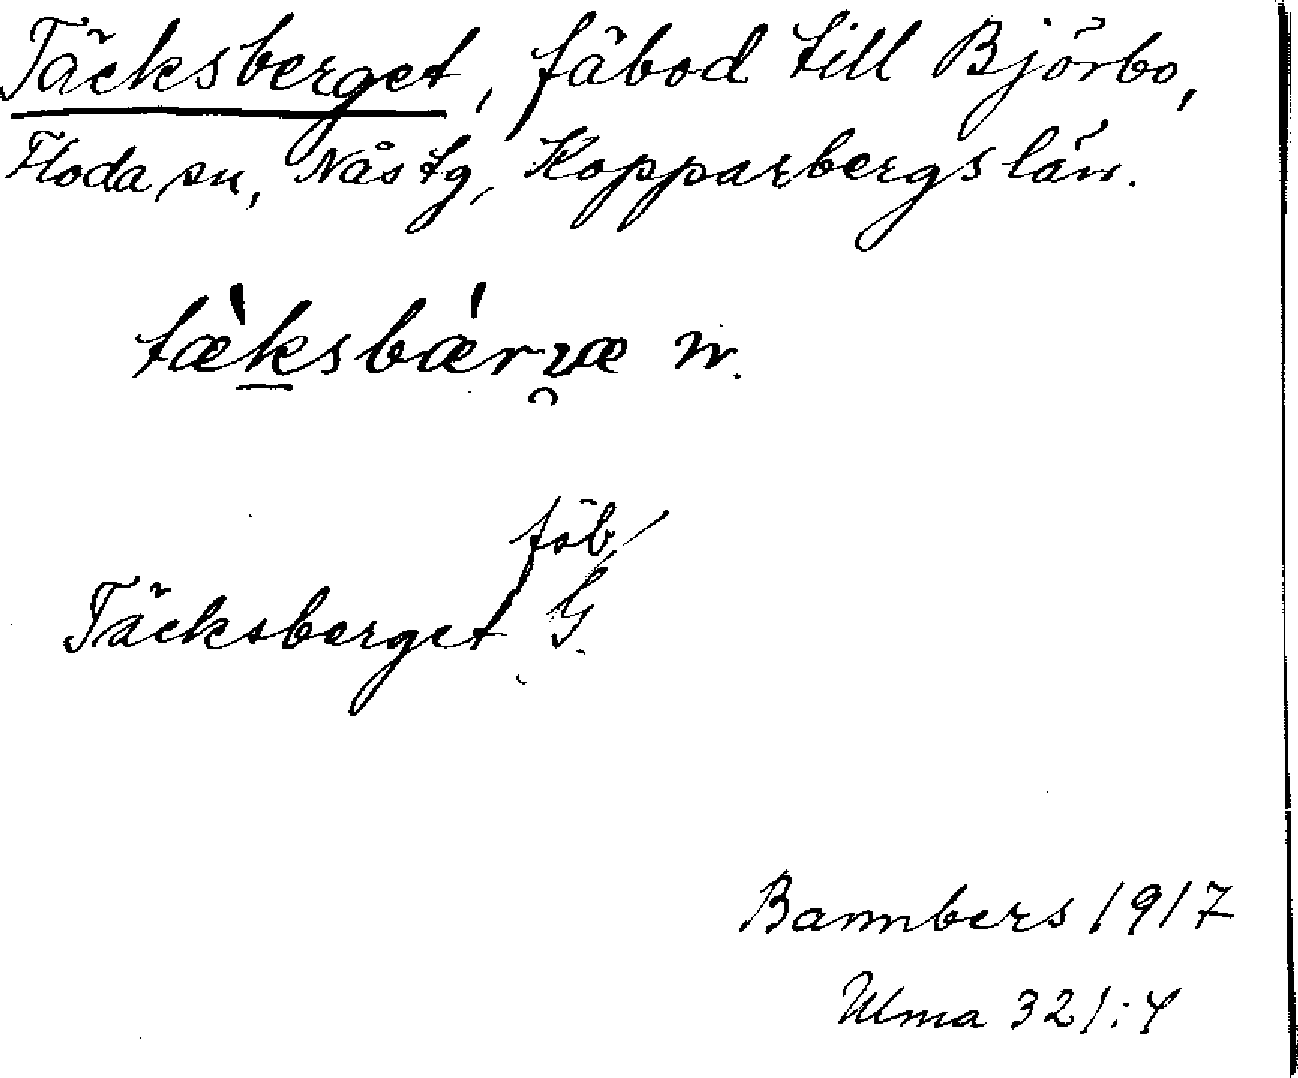 Täcksberget, fäbod till Björbo,
Floda sn, Nås tg, Kopparbergs län.
tæ̀ksbǽrvæ n.
fäb/
Täcksberget G.
Bannbers 1917
Ulma 321:4